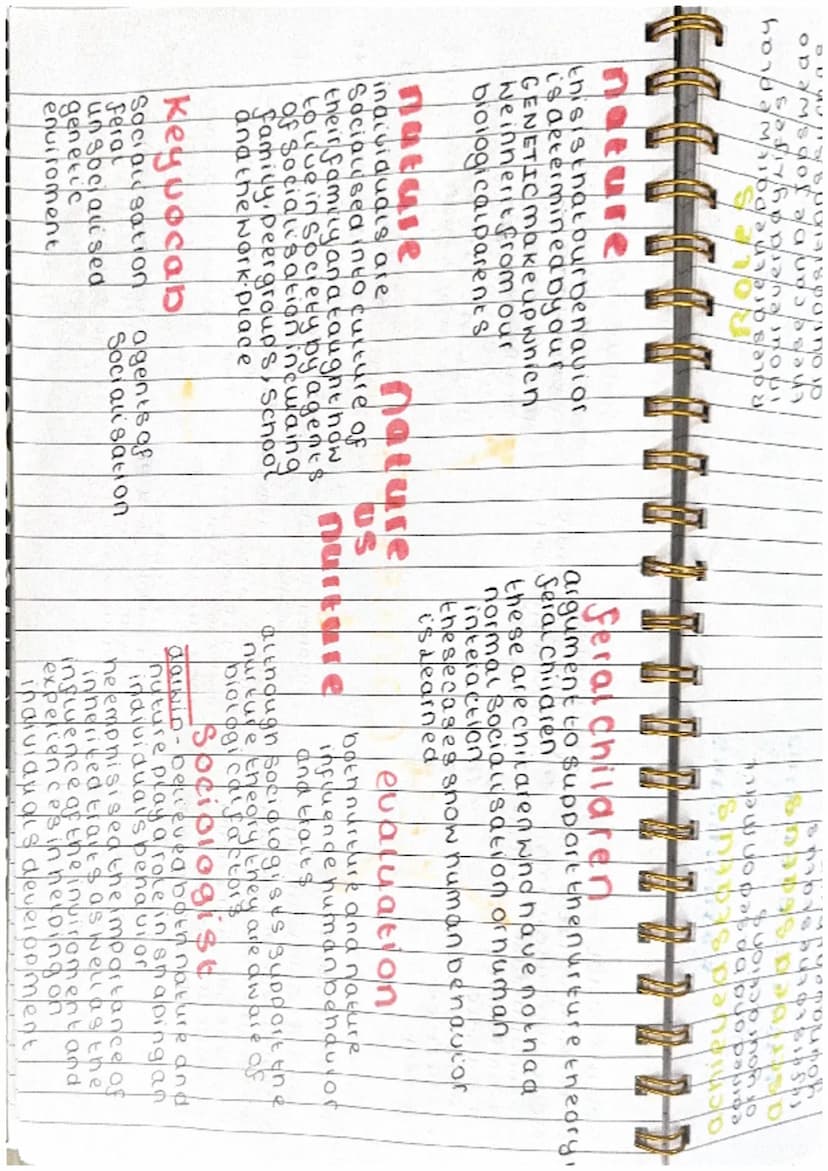 nature
this is that our behavior
is determined by your
GENETIC makeup which
we innerit from our
biological parents
feral children
argument to support the nurture theory,
feral children
these are children who have not had
normal socialisation or human
interaction
these cases show human behavior
is learned
nature
individuals are
socialised into culture of
their family and taught how
to live in society by agents
of socialisation incluaing
family, peer groups, school
and the work-place
nature
vs
nurture
evaluation
both nurture and nature
influence human behavior
and traits
although sociologists support the
nurture theory they are aware of
biological factors
sociologist
darwin - believed both nature and
nuture play a role in shaping an
individuals behavior
he emphissed the importance of
inherited traits as well as the
influence of the invironment and
experiences in helping on
individuals development
key vocab
socialisation
feral
unsocialised
genetic
enviroment
agents of
socialisation
ROLES
Roles are the part we
in our everyday life
these can be jobs we do
achieved status
earned and based on merit
or your actions
ascribed status
refers to the status